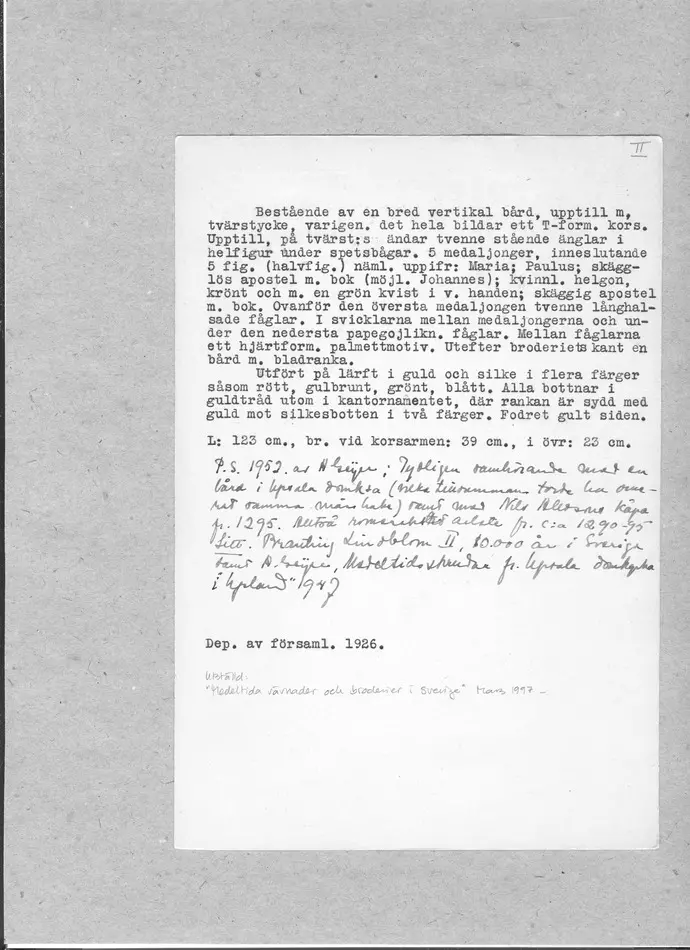 II
Bestående av en bred vertikal bård, upptill m,
tvärstycke, varigen. det hela bildar ett T-form. kors.
Upptill, på tvärst:s ändar tvenne stående änglar i
helfigur under spetsbågar. 5 medaljonger, inneslutande
5 fig. (halvfig.) näml. uppifr: Maria; Paulus; skägg-
lös apostel m. bok (möjl. Johannes); kvinnl. helgon,
krönt och m. en grön kvist i v. handen; skäggig apostel
m. bok. Ovanför den översta medaljongen tvenne långhal-
sade fåglar. I svicklarna mellan medaljongerna och un-
der den nedersta papegojlikn. fåglar. Mellan fåglarna
ett hjärtform. palmettmotiv. Utefter broderiets kant en
bård m. bladranka.
Utfört på lärft i guld och silke i flera färger
såsom rött, gulbrunt, grönt, blått. Alla bottnar i
guldtråd utom i kantornamentet, där rankan är sydd med
guld mot silkesbotten i två färger. Fodret gult siden.
L: 123 cm., br. vid korsarmen: 39 cm., i övr: 23 cm.
P.S. 1952. av A Geijer; Tydligen samhörande med en
bård i Upsala domka (vilka tillsamman torde ha
samma) samt med Nils Allesons kåpa
fr. 1295. arbete fr. c:a 1290-95
Litt. Branting Lindblom II, 10.000 år i Sverige
samt A. Geijer, Medeltidsskrudar fr. Upsala domkyrka
i "Upland" 1947
Dep. av församl. 1926.
Utställd:
"Medeltida vävnader och broderier i Sverige" Mars 1997 -